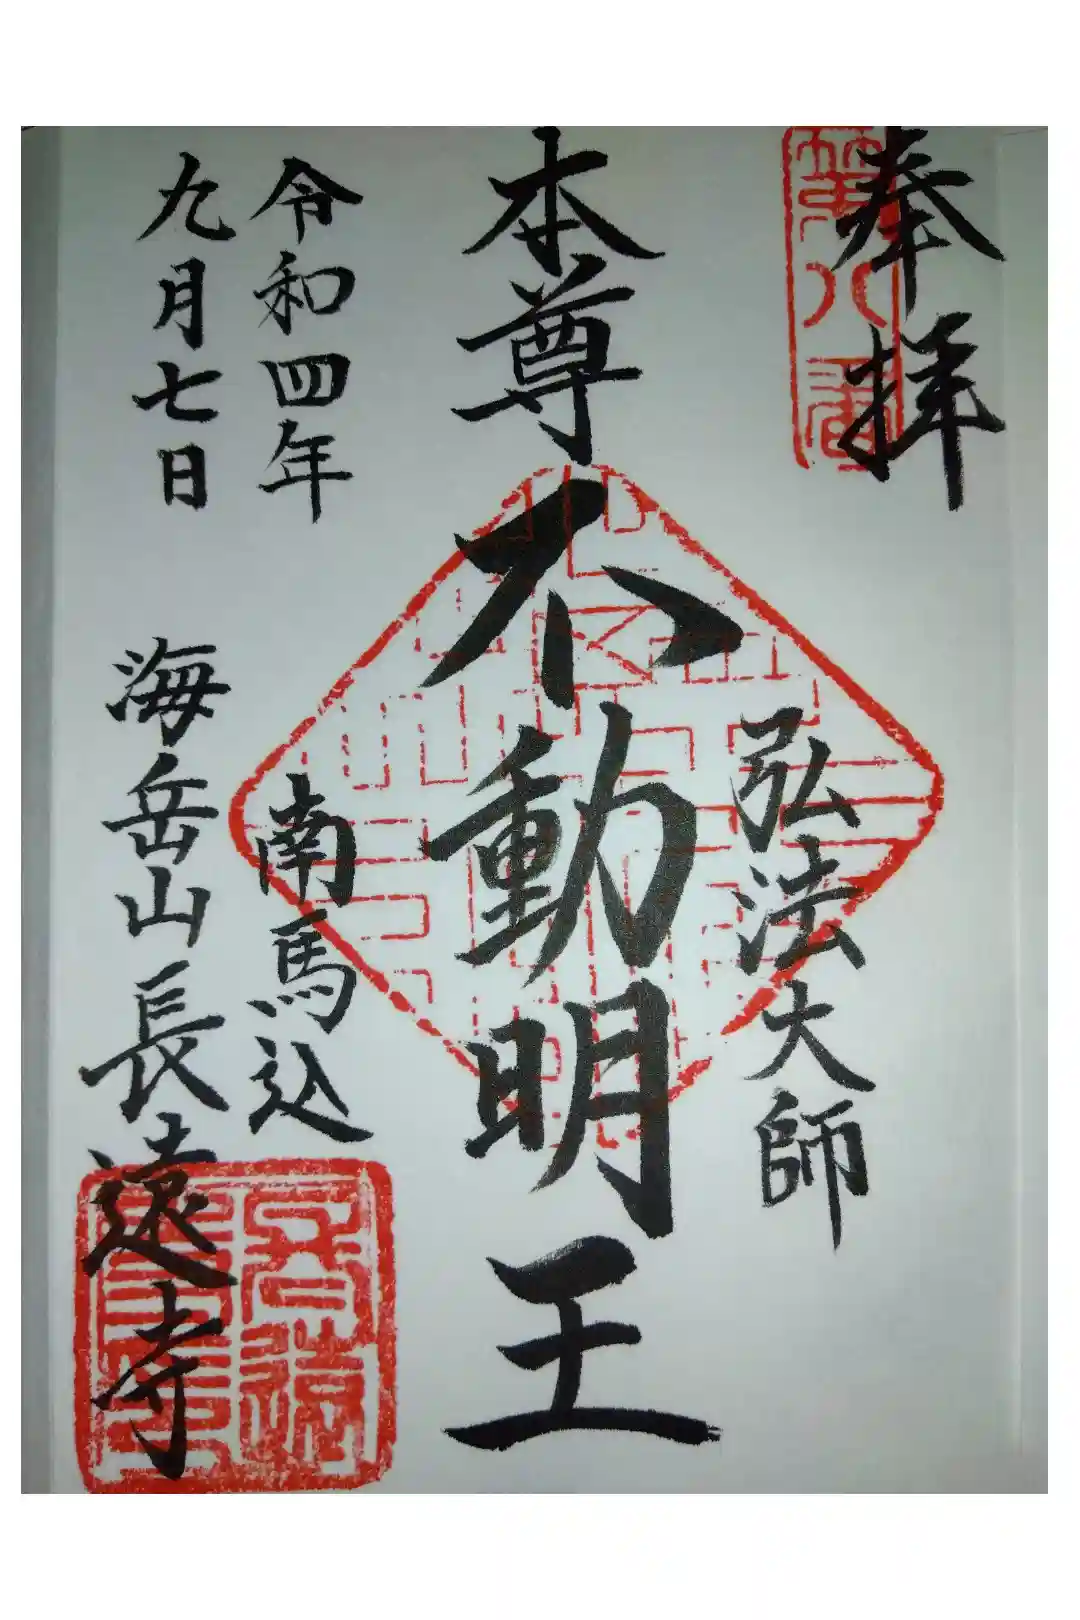 奉拝
第八番
弘法大師
本尊不動明王
南馬込
海岳山長遠寺
令和四年
九月七日